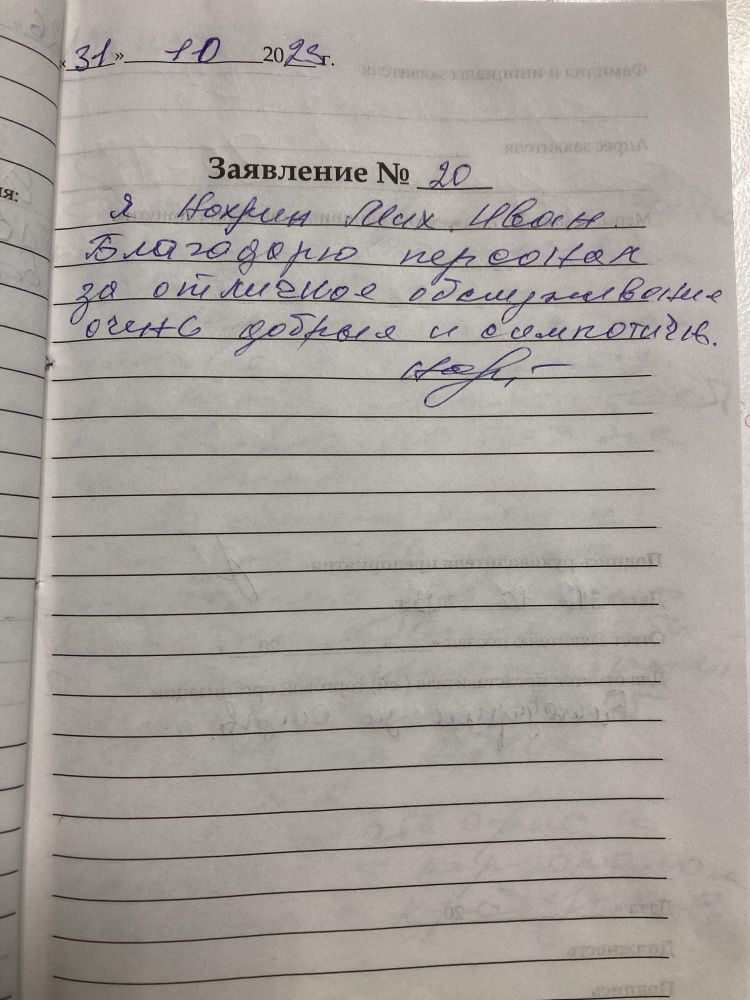 «31» 10 2023г.
Заявление № 20
Я Нохрин Мих. Иван.
Благодарю персонал
за отличное обслуживание
очень добрыя и симпотичн.
ия: